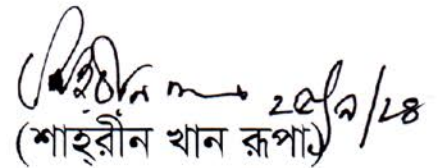 ২৫/৯/২৪
(শাহ্‌রীন খান রূপা)